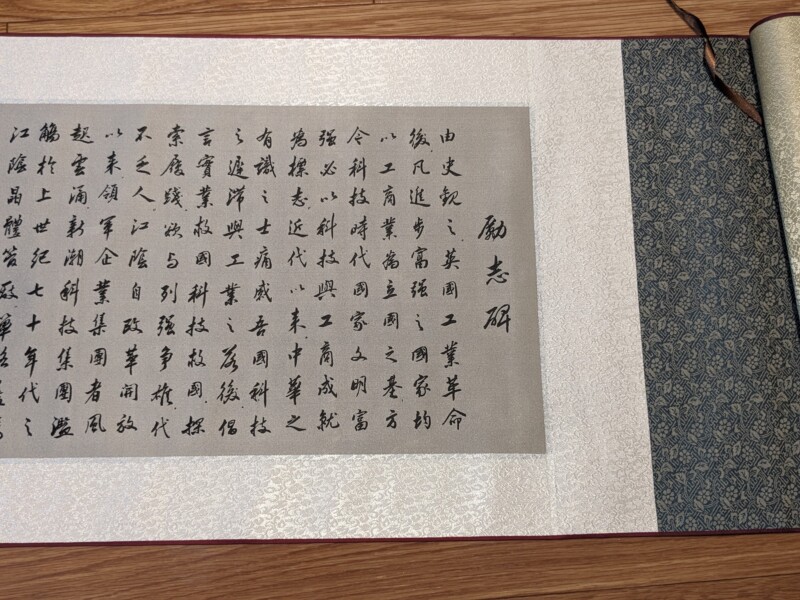 勵志碑
由史觀之英國工業革命
後凡進步富强之國家均
以工商業為立國之基方
今科技時代國家文明富
强必以科技與工商成就
為標志近代以來中華之
有識之士痛感吾國科技
之遲滯與工業之落後倡
言實業救國科技救國探
索履踐欲与列强爭雄代
不乏人江陰自改革開放
以來領軍企業集團者風
起雲涌新潮科技集團濫
觴於上世紀七十年代之
江陰晶體管